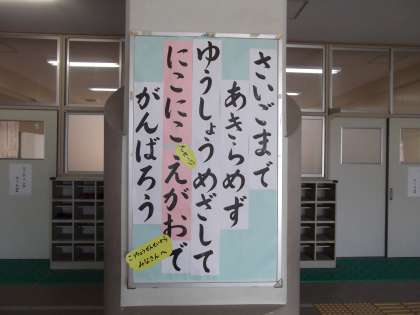 さいごまで
あきらめず
ゆうしょうめざして
にこにこえがおで
がんばろう
みなさんへ